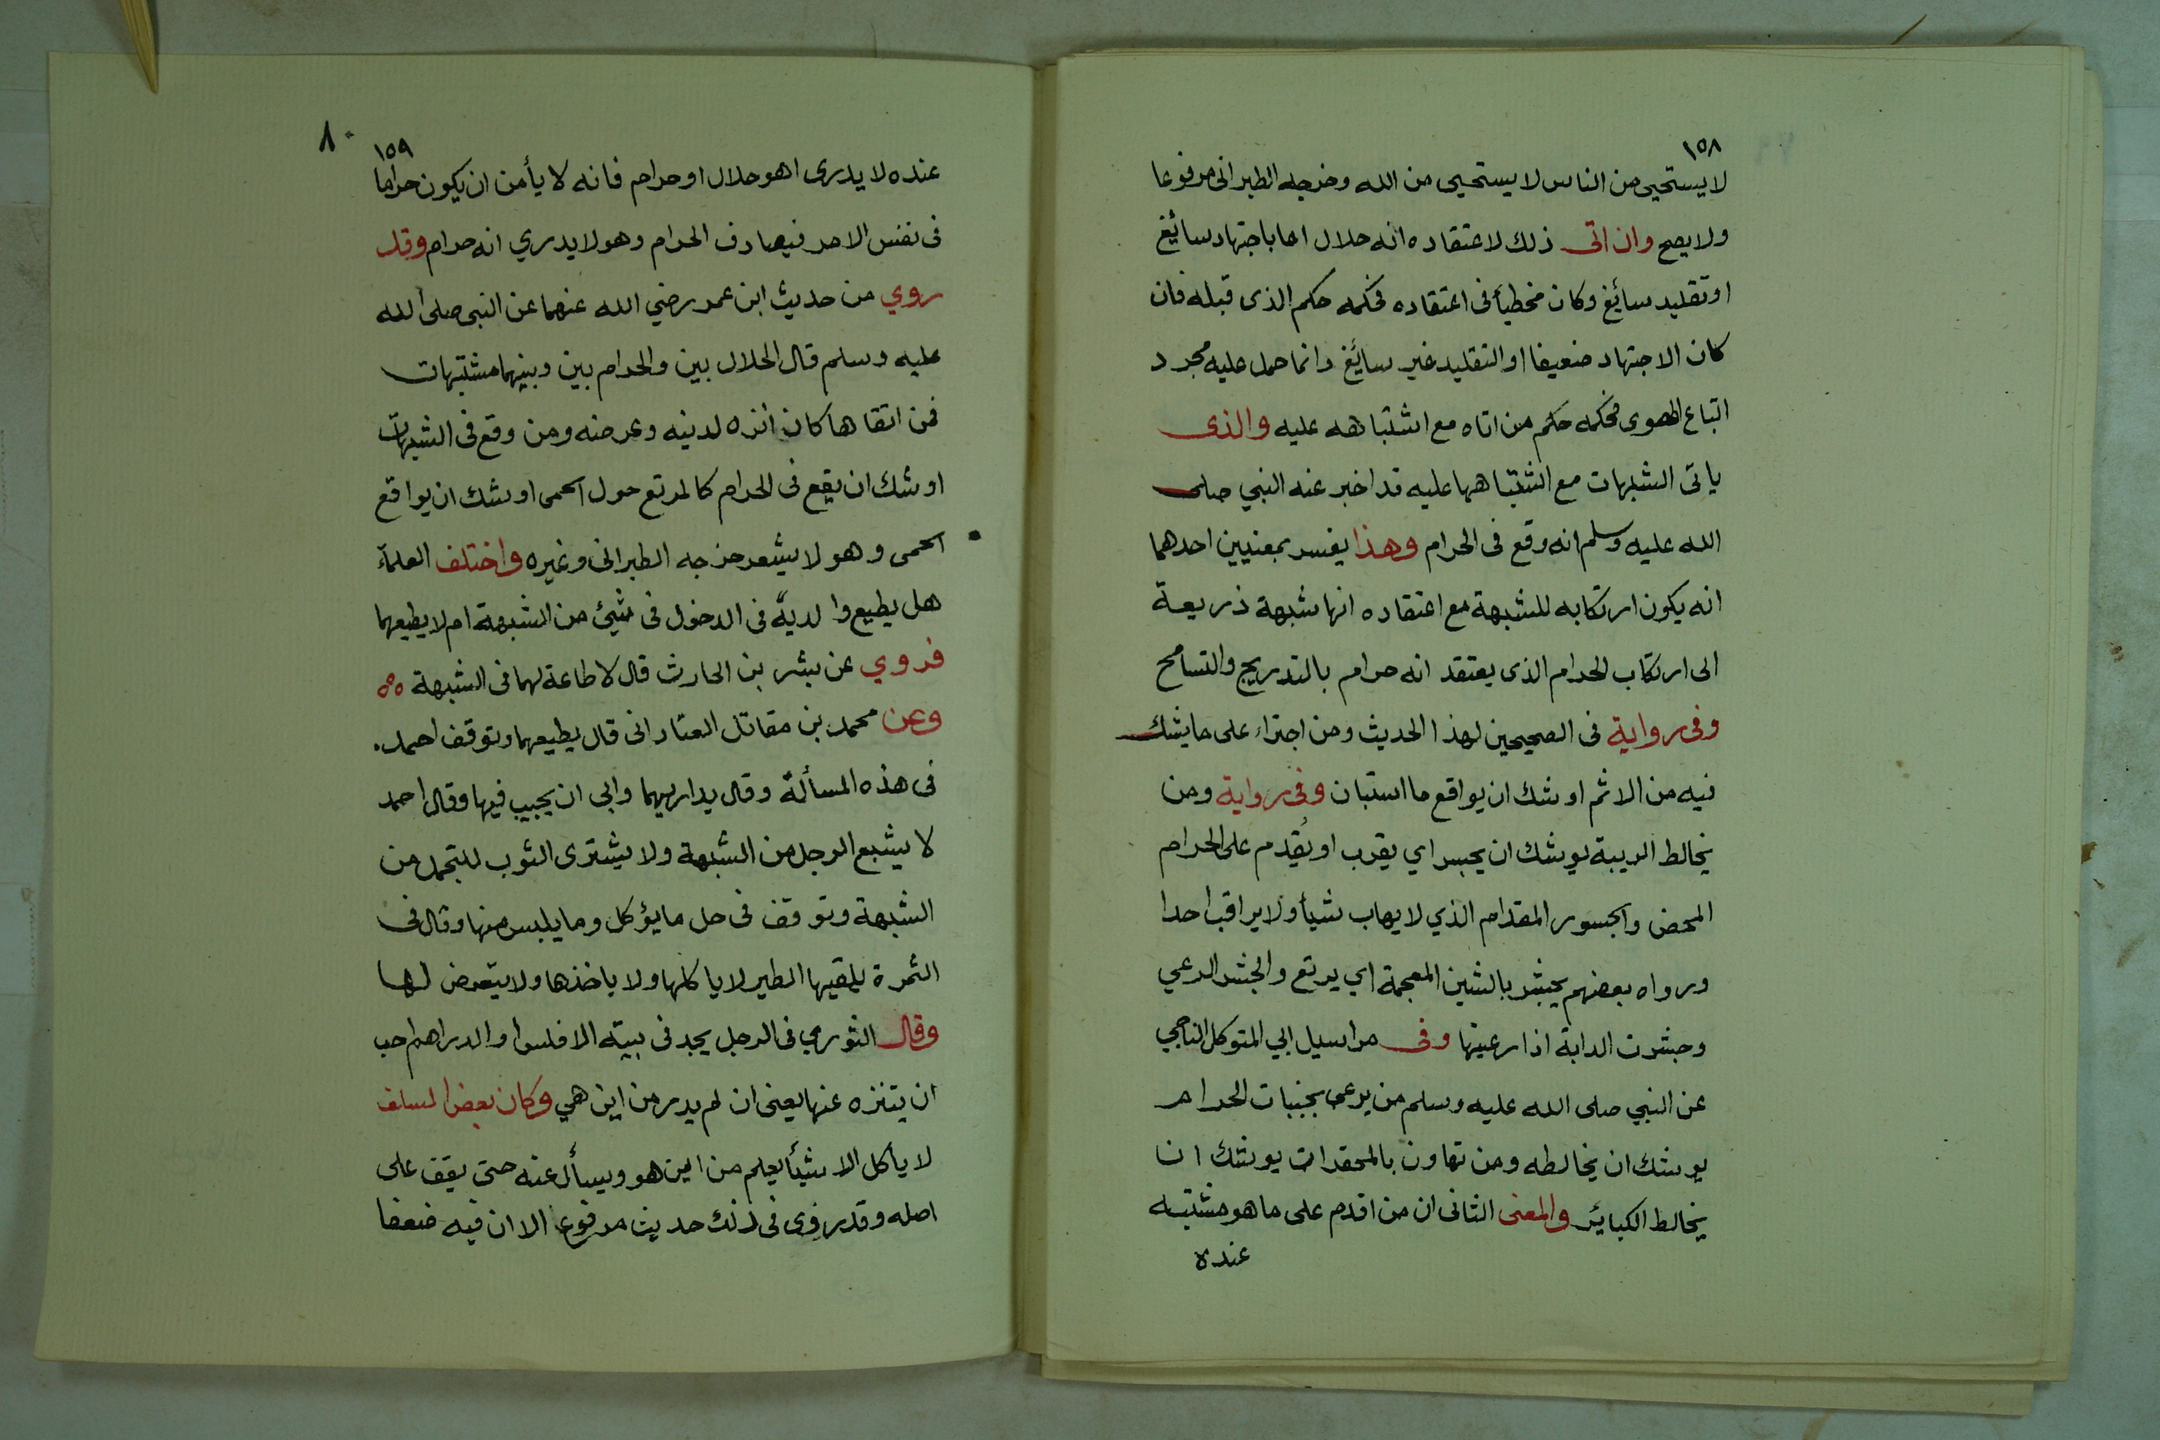 ١٥٨
لا يستحيى من الناس لا يستحيى من الله وخرجه الطبرانى مرفوعا
ولا يصح وان اتى ذلك لاعتقاده انه حلال اما باجتهاد سائغ
او تقليد سائغ وكان مخطيأ فى اعتقاده فحكمه حكم الذى قبله فان
كان الاجتهاد ضعيفا او التقليد غير سائغ وانما حمل عليه مجرد
اتباع الهوى فحكمه حكم من اتاه مع اشتباهه عليه والذى
ياتى الشبهات مع اشتباهها عليه قد اخبر عنه النبي صلى
الله عليه وسلم انه وقع فى الحرام وهذا يفسر بمعنيين احدهما
انه يكون ارتكابه للشبهة مع اعتقاده انها شبهة ذريعة
الى ارتكاب الحرام الذى يعتقد انه حرام بالتدريج والتسامح
وفى رواية فى الصحيحين لهذا الحديث ومن اجتراء على ما يشك
فيه من الاثم اوشك ان يواقع ما استبان وفى رواية ومن
يخالط الريبة يوشك ان يجسر اي يقرب او يُقدم على الحرام
المحض والجسور المقدام الذي لا يهاب شيأ ولا يراقب احدا
ورواه بعضهم يجشر بالشين المعجمة اي يرتع والجشر الرعي
وجشرت الدابة اذا رعيتها وفى مراسيل ابي المتوكل الناجي
عن النبي صلى الله عليه وسلم من يرعى بجنبات الحرام
يوشك ان يخالطه ومن تهاون بالمحقرات يوشك ان
يخالط الكبائر والمعنى الثانى ان من اقدم على ما هو مشتبه
عنده
٨٠
١٥٩
عنده لا يدرى اهو حلال او حرام فانه لا يأمن ان يكون حراما
فى نفس الامر فيصادف الحرام وهو لا يدري انه حرام وقد
روي من حديث ابن عمر رضي الله عنهما عن النبى صلى الله
عليه وسلم قال الحلال بين والحرام بين وبينهما مشتبهات
فمن اتقاها كان انزه لدينه وعرضه ومن وقع فى الشبهات
اوشك ان يقع فى الحرام كالمرتع حول الحمى اوشك ان يواقع
الحمى وهو لا يشعر خرجه الطبرانى وغيره واختلف العلمآء
هل يطيع والديه فى الدخول فى شيئ من الشبهة ام لا يطيعهما
فروي عن بشر بن الحارث قال لا طاعة لهما فى الشبهة
وعن محمد بن مقاتل العبادانى قال يطيعهما وتوقف احمد
فى هذه المسألة وقال يداريهما وابى ان يجيب فيها وقال احمد
لا يشبع الرجل من الشبهة ولا يشترى الثوب للتجمل من
الشبهة وتوقف فى حل ما يؤكل وما يلبس منها وقال فى
الثمرة يلقيها الطير لا ياكلها ولا ياخذها ولا يتعرض لها
وقال الثوري فى الرجل يجد فى بيته الافلس او الدراهم احب
ان يتنزه عنها يعنى ان لم يدر من اين هي وكان بعض السلف
لا يأكل الا شيأ يعلم من اين هو ويسأل عنه حتى يقف على
اصله وقد روى فى ذلك حديث مرفوع الا ان فيه ضعفا